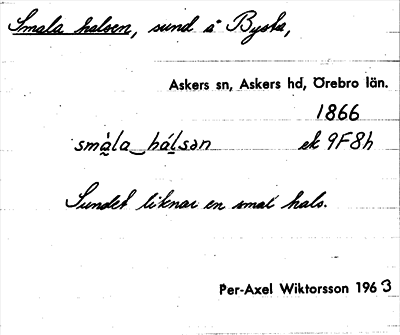 Smala halsen, sund å Byska,
Askers sn, Askers hd, Örebro län.
1866
smàla hálsən ek 9F8h
Sundet liknar en smal hals.
Per-Axel Wiktorsson 1963